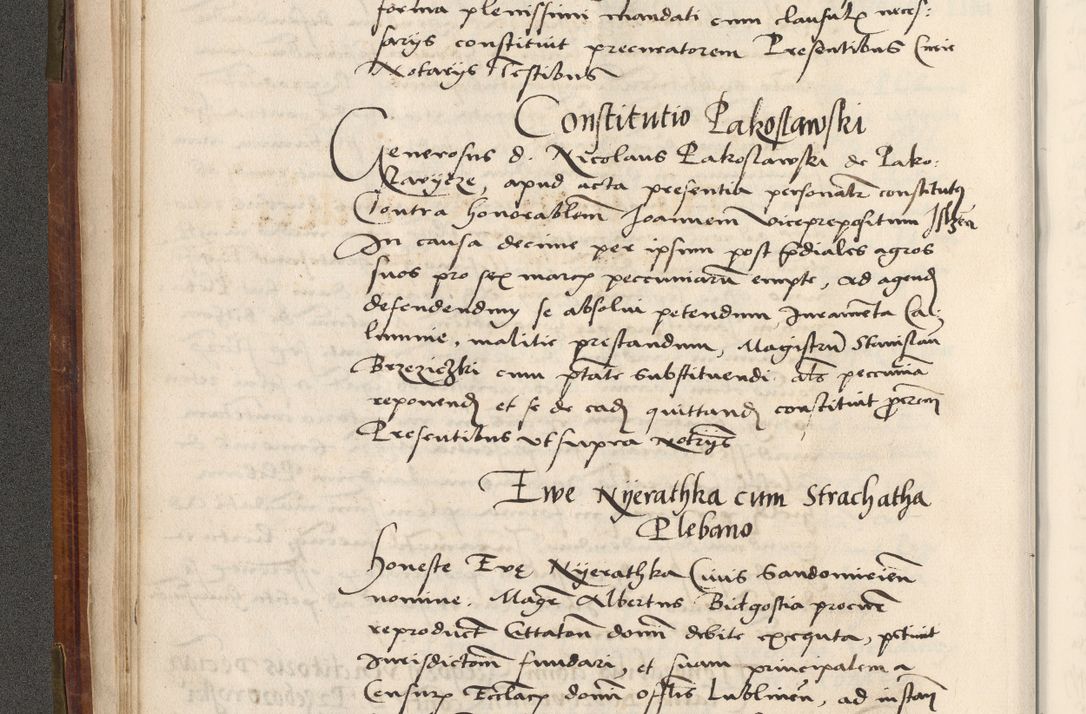 forma plenissimi mandati cum clausulis neces:
sarijs constituit procuratorem Presentibus Curie
Notarijs Testibus
Constitutio Pakoslawski
Generosus d. Nicolaus Pakoslawski de Pako:
slavycze, apud acta presentia personaliter constitutus
Contra honorablem Joannem viceprepositum
In causa decime per ipsum post prediales agros
suos pro sex marcis peccuniarum empte, ad agend
defendendumque se absolui petendum, Juramenta Ca:
lumnie, malitie prestandum, Magistrum Stanislaum
Brzeziczki cum ptate substituendi als peccunia
reponend et se de ead quittand constituit procrem
Presentibus vt supra Notrijs
Ewe Nyerathka cum Strachatha
Plebano
Honeste Eve Nyerathka Civis Sandomirien
nomine. Magr Albertus Bidgostia procur
reproduct Citaton domin debite exequta, petiuit
Jurisdictom fundari, et suam principalem a
Censuris Ecclacis domin Offlis Lublinen, ad instan